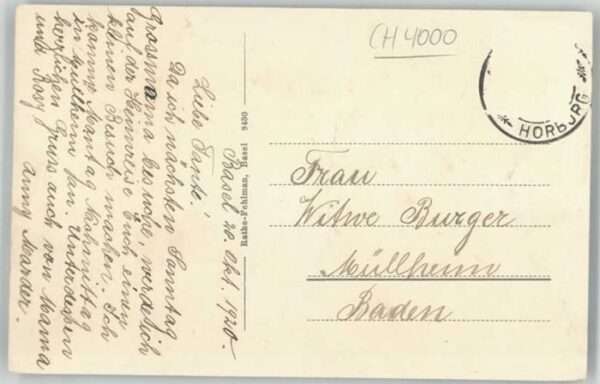 CH 4000
HORBURG
Basel 20. Okt. 1920.
Liebe Tante!
Da ich nächsten Sonntag
Grossmama besuche, werde ich
auf der Heimreise Euch einen
kleinen Besuch machen. Ich
komme Montag Nachmittag
in Müllheim an. Unterdessen
herzlichen Gruss auch von Mama
und Rosy
Anny Marder.
Rathe-Fehlman, Basel 9430
Frau
Witwe Burger
Müllheim
Baden